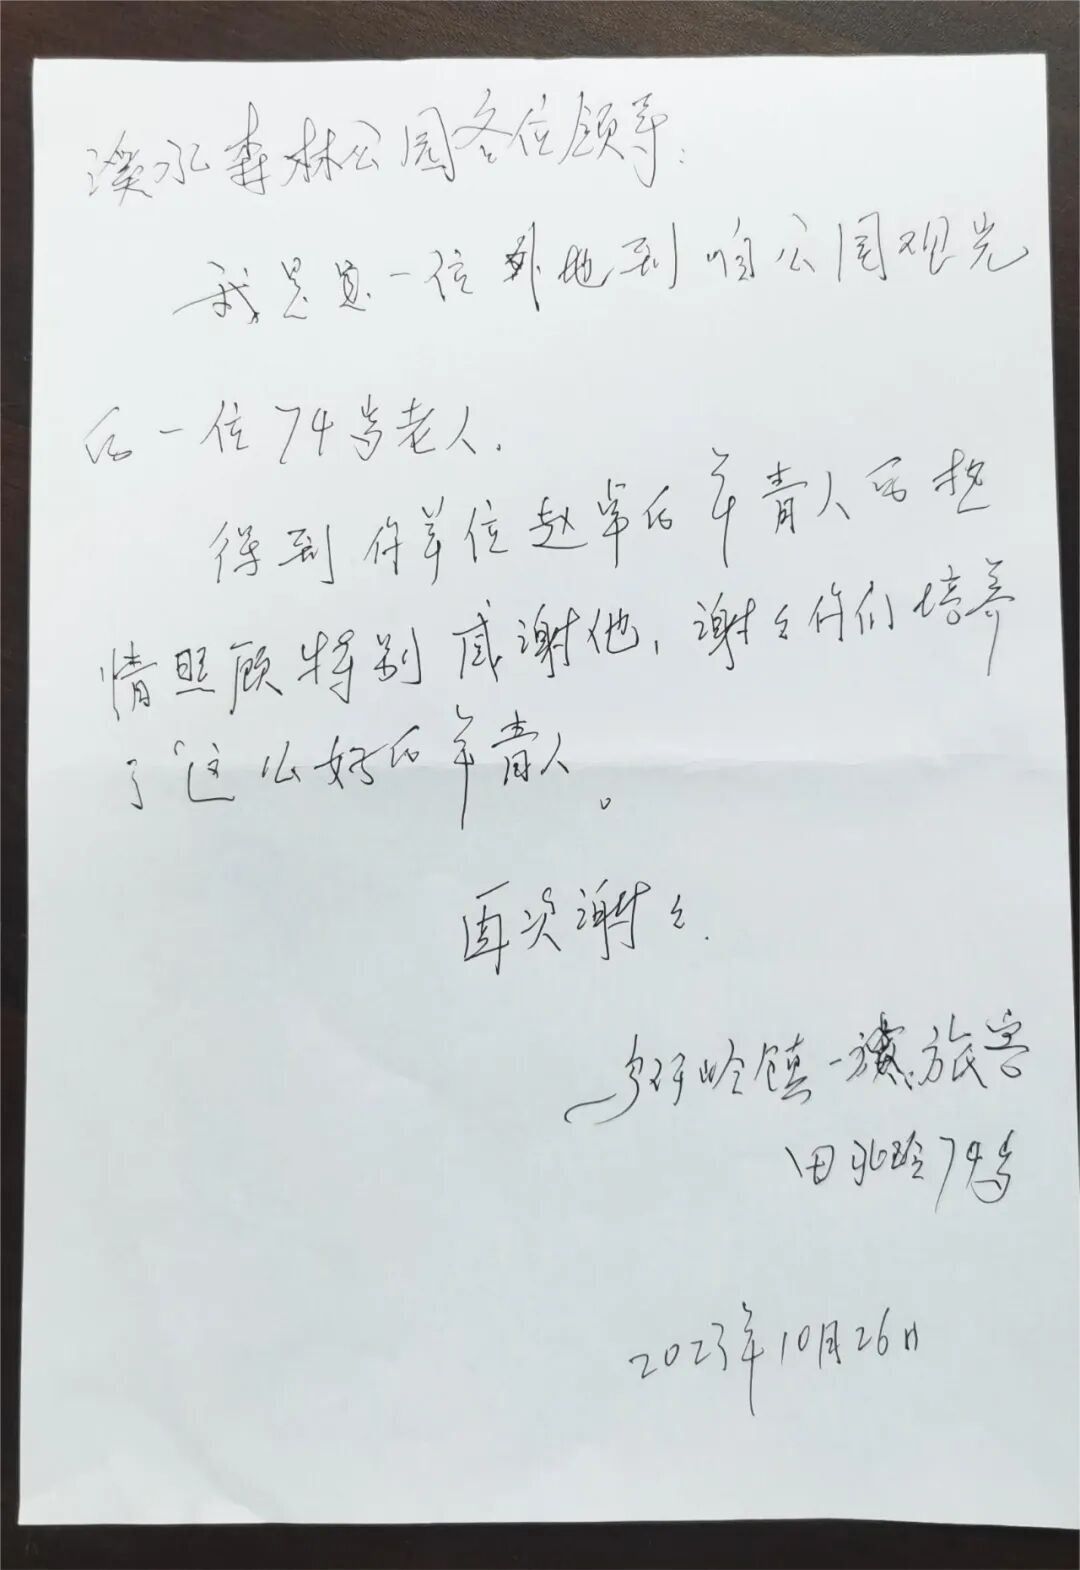 溪水森林公园各位领导:
我是是一位外地到咱公园观光
的一位74岁老人.
得到你单位赵军的年青人的热
情照顾特别感谢他,谢谢你们培养
了这么好的年青人。
再次谢谢.
岭镇一 旅客
田 玲74岁
2023年10月26日